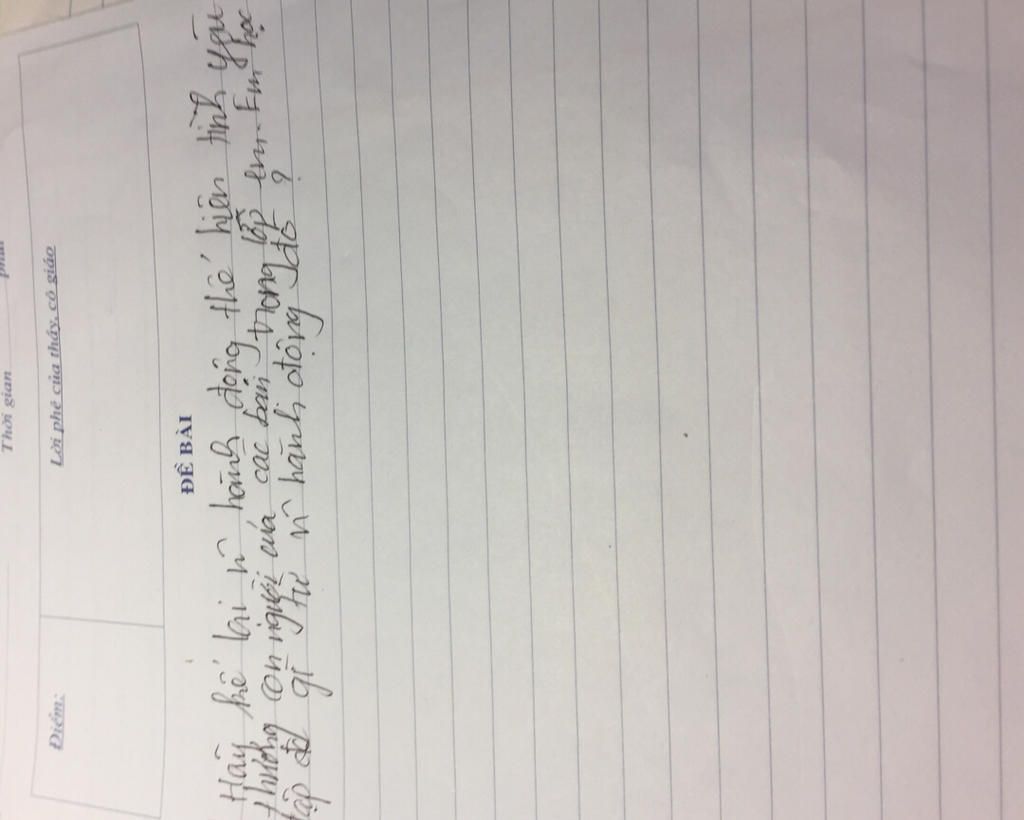 Thời gian phút
Điểm:
Lời phê của thầy, cô giáo
ĐỀ BÀI
Hãy kể lại n~ hành động thể hiện tình yêu
thương con người của các bạn trong lớp em. Em học
tập đc gì từ n~ hành động đó ?